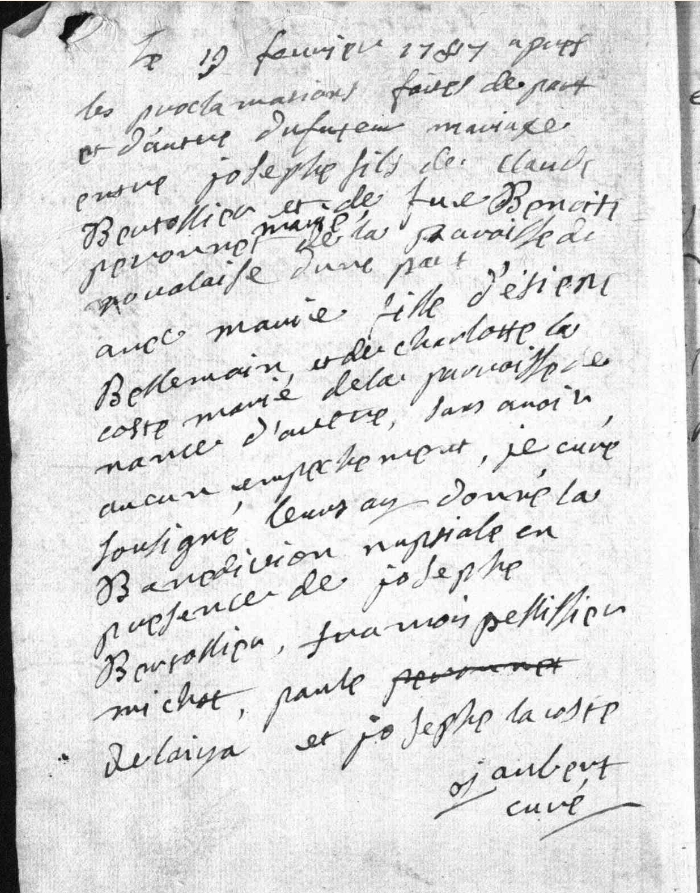 Le 19 fevrier 1787 apres
les proclamations faites de part
et d'autre du futeur mariage
entre josephe fils de claude
Bertollier et de fue Benoiti
peronnet mariés, de la paroisse de
novalaise d'une part
avec marie fille d'étiene
Bellemain, et de charlotte la
coste marié de la paroisse de
nance d'autre, sans avoir
aucun empechement, je curé
sousigné leurs ay donné la
Banediction nuptiale en
presence de josephe
Bertollier, francois pellissier
michot, paule peronnet
et josephe lacoste
jaubert
curé